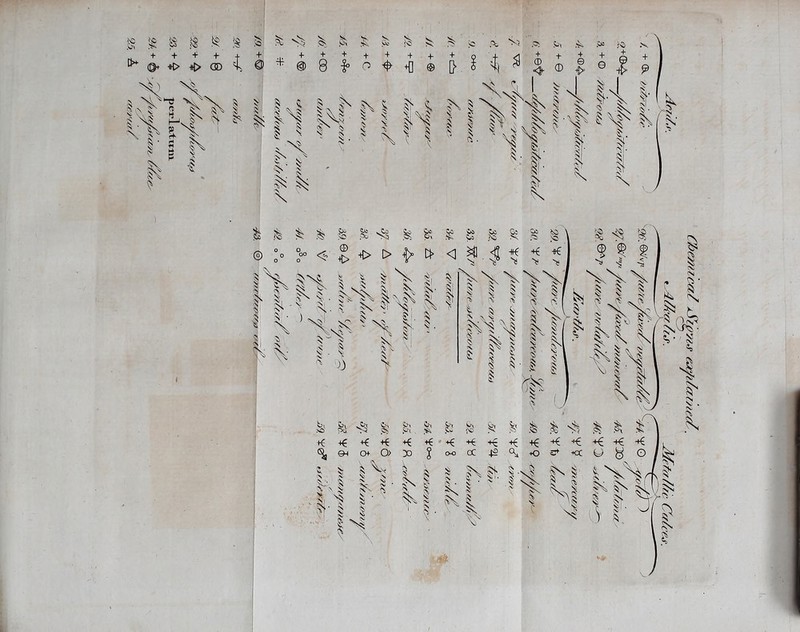 Chemical Signs explained.
Acids.
1. vitriolic
2. phlogisticated
3. nitrous
4. phlogisticated
5. marine
6. dephlogisticated
7. Aqua regia
8. of fluor
9. arsenic
10. borax
11. Sugar
12. tartar
13. sorrel
14. lemon
15. benzoin
16. amber
17. sugar of milk
18. acetous distilled
19. milk
20. ants
21. fat
22. of phosphorus
23. perlatum
24. of prussian blue
25. aerial
Alkalis.
26. pure fixed vegetable
27. pure fixed mineral
28. pure volatile
Earths.
29. pure ponderous
30. pure calcareous, lime
31. pure magnesia
32. pure argillaceous
33. pure siliceous
34. water
35. vital air
36. phlogiston
37. matter of heat
38. sulphur
39. saline hepar
40. spirit of wine
41. æther
42. essential oil
43. unctuous oil
Metallic Calces.
44. gold
45. platina
46. silver
47. mercury
48. lead
49. copper
50. iron
51. tin
52. bismuth
53. nickle
54. arsenic
55. cobalt
56. zinc
57. antimony
58. manganese
59. siderite